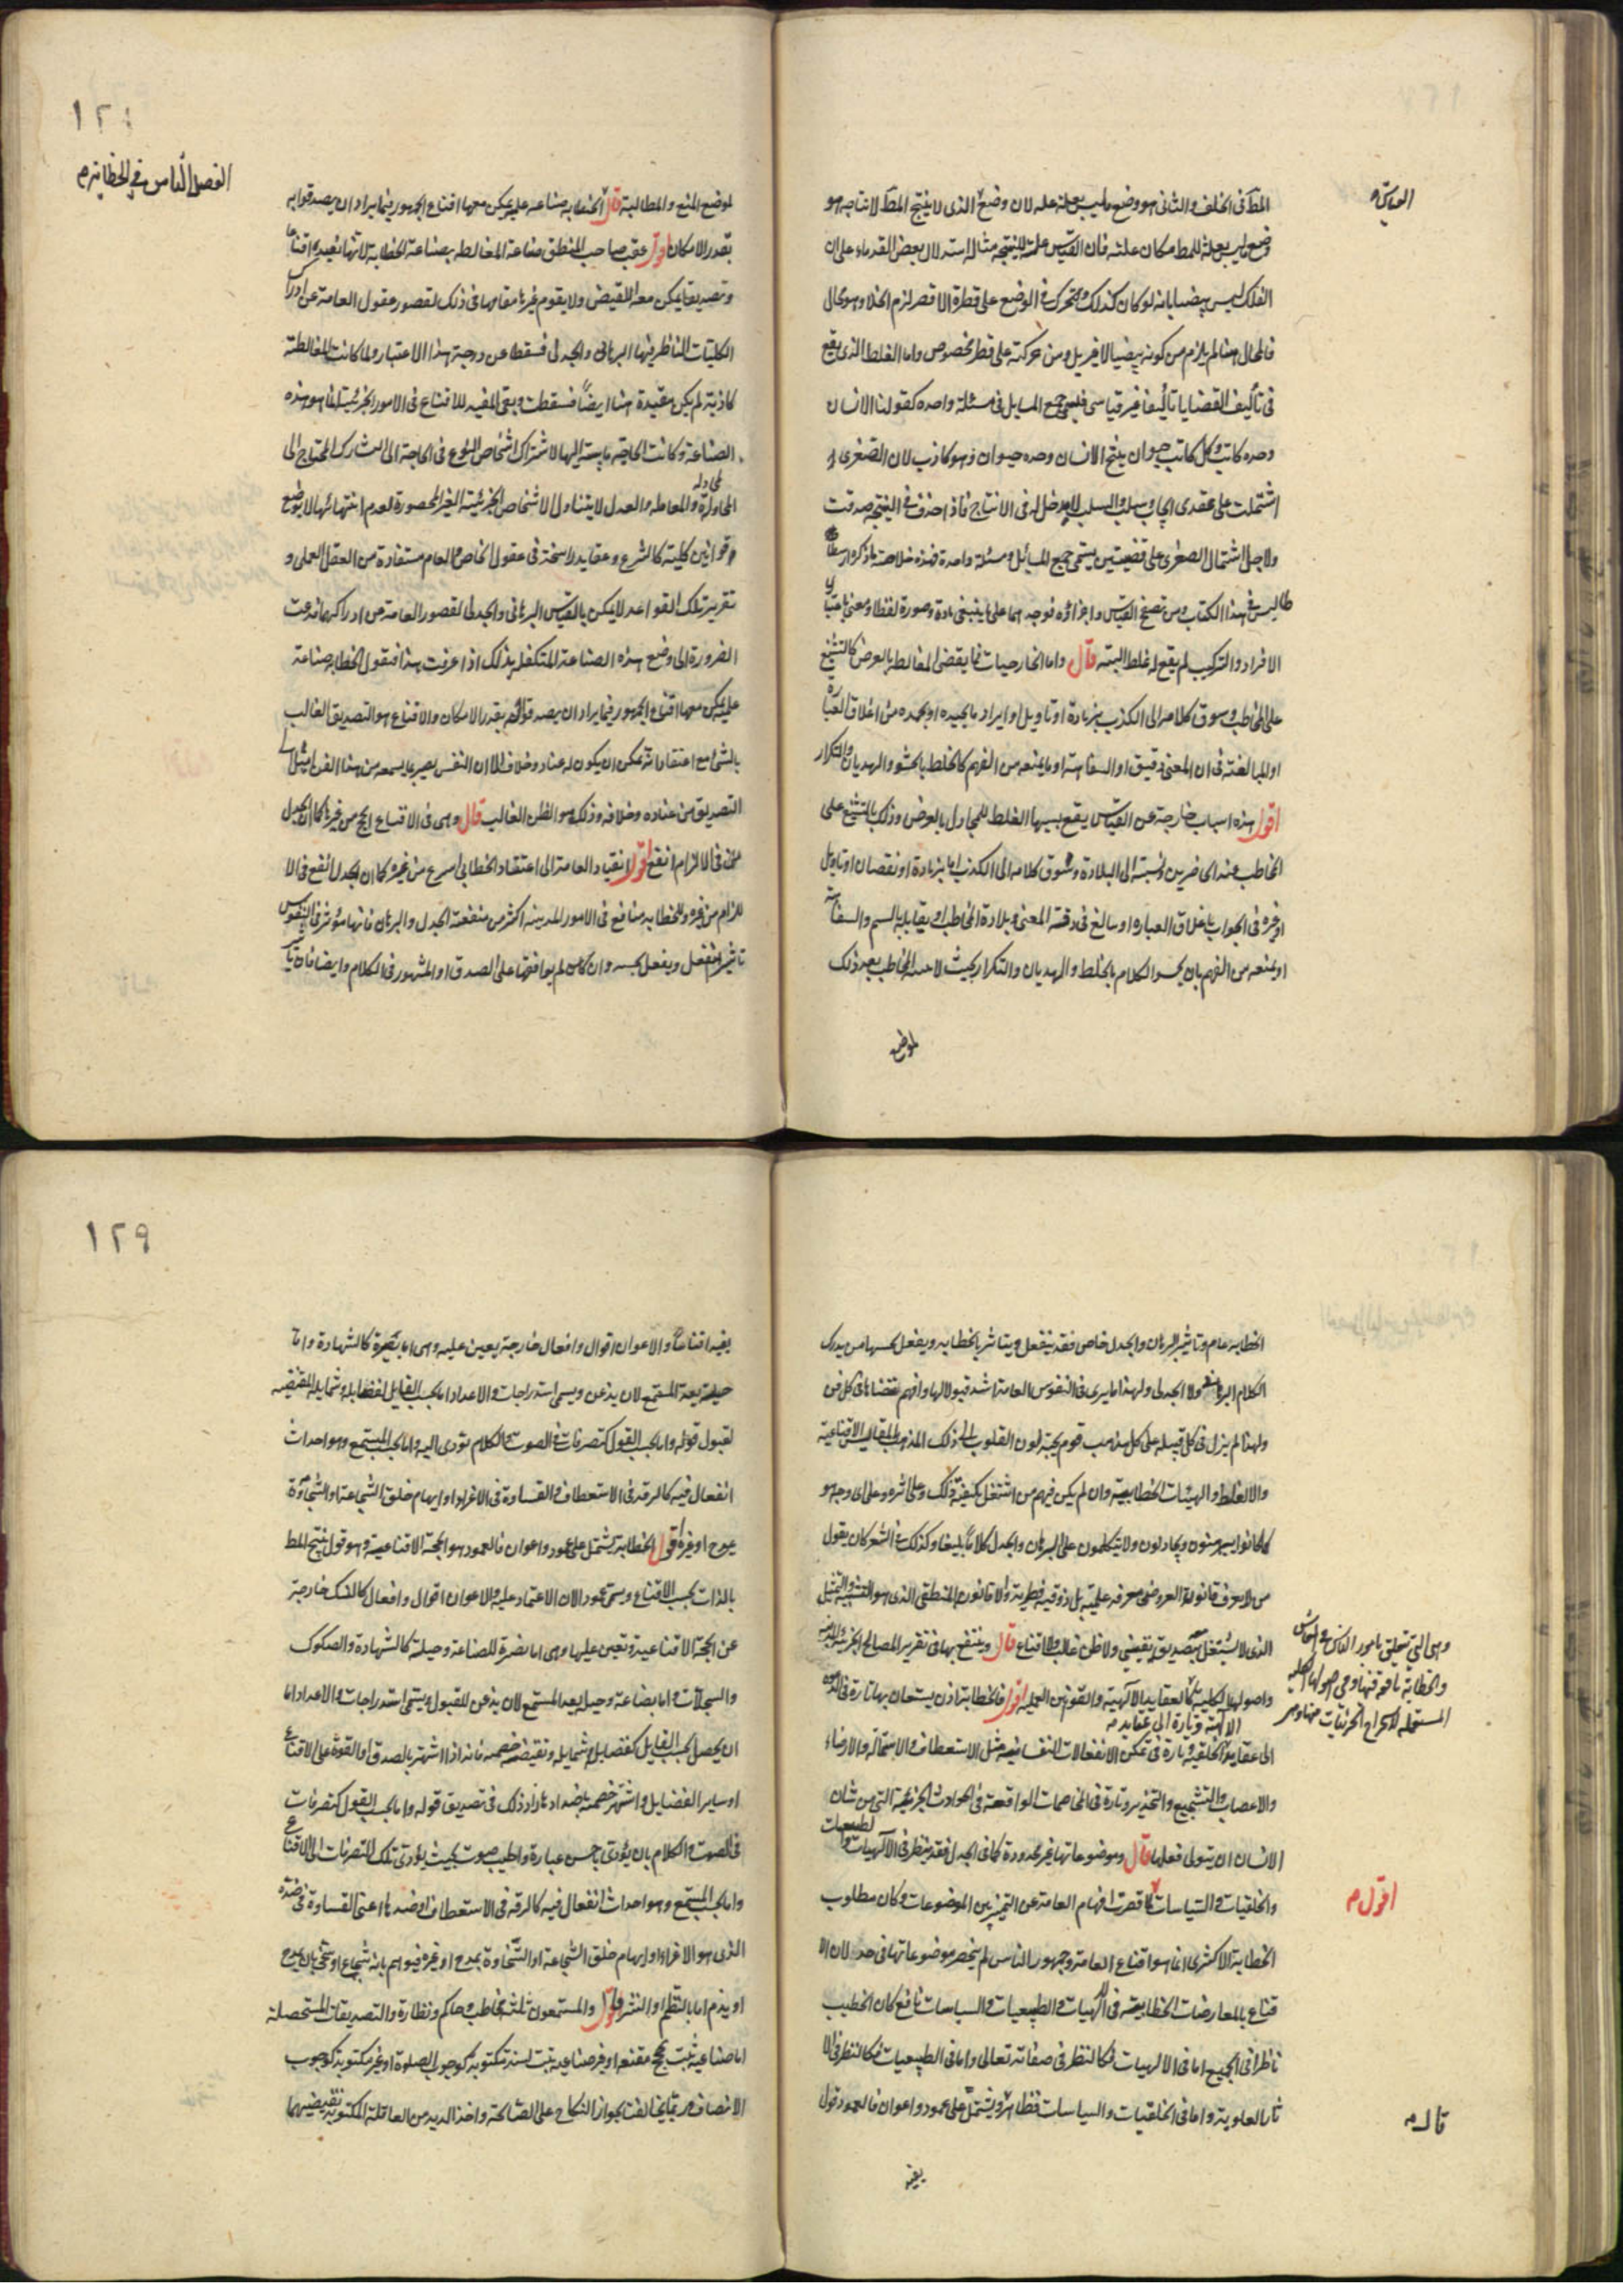 القياس
المط كما فى الخلف والثانى هو وضع ما ليس بعلة علة لان وضع الذى لا ينتج المط لانتاجه هو
وضع ما ليس بعلة للمط مكان علته فان القياس علة للنتيجة مثاله استدلال بعض القدماء على ان
الفلك ليس ببيضى بانه لو كان كذلك وتحرك فى الوضع على قطره الاقصر لزم الخلاء وهو محال
فالمحال هنا لم يلزم من كونه بيضيا لا غير بل ومن حركته على قطر مخصوص واما الغلط الذى يقع
فى تأليف القضايا تأليفا غير قياسى فيسمى جمع المسايل فى مسئلة واحده كقولنا الانسان
وحده كاتب وكل كاتب حيوان ينتج الانسان وحده حيوان وهو كاذب لان الصغرى
اشتملت على عقدى ايجاب وسلب والسلب لا مدخل له فى الانتاج فاذا حذف فى النتيجة صدقت
ولاجل اشتمال الصغرى على قضيتين يسمى جمع المسائل فى مسئلة واحدة فهذه خلاصة ما ذكره ارسطا
طاليس فى هذا الكتاب ومن تصفح القياس واجزاؤه فوجدهما على ما ينبغى مادة وصورة لفظا ومعنى باعتبار
الافراد والتركيب لم يقع له غلط البته قال واما الخارجيات فما يقتضى المغالطة بالعرض كالتشنيع
على المخاطب وسوق كلامه الى الكذب بزيادة او تاويل او ايراد ما يحيره او يجمده من اغلاق العبارة
او المبالغة فى ان المعنى دقيق او السفاهة او ما يمنعه من الفهم كالخلط بالحشو والهذيان والتكرار
اقول هذه اسباب خارجة عن القياس يقع بسببها الغلط للمجادل بالعرض وذلك بالتشنيع على
المخاطب عند الحاضرين ونسبته الى البلادة وسوق كلامه الى الكذب اما بزيادة او نقصان او تاويل
او غيره فى الجواب باغلاق العباره او يبالغ فى دقة المعنى وبلادة المخاطب او يقابله بالسب والسفاهة
او يمنعه من الفهم بان يحسو الكلام بالخلط والهذيان والتكرار بحيث لا المخاطب بعد ذلك
لموضع
١٢٨
الفصل الثامن فى الخطابة م
لموضع المنع والمطالبة قال الخطابة صناعة علمية يمكن معها اقناع الجمهور فيما يراد ان يصدقوا به
بقدر الامكان اقول عقب صاحب المنطق صناعة المغالطه بصناعة الخطابة لانها تفيد اقناعا
وتصديقا يمكن معه النقيض ولا يقوم غيرها مقامها فى ذلك لقصور عقول العامة عن ادراك
الكليات الناظر فيها البرهانى والجدلى فسقطا عن درجة هذا الاعتبار ولما كانت المغالطة
كاذبة لم يكن مفيدة هنا ايضا فسقطت وبقى المفيد للاقناع فى الامور الجزئية انما هو هذه
الصناعة وكانت الحاجة ماسة اليها لاشتراك اشخاص النوع فى الحاجة الى التشارك المحتاج الى
المحاولة والمعاملة والعدل لا يتناول الاشخاص الجزئية الغير المحصورة لعدم انتهائها الا بوضع
قوانين كلية كالشرع وعقايد راسخة فى عقول الخاص والعام مستفادة من العقل العملى و
تقرير تلك القواعد لا يمكن بالقياس البرهانى والجدلى لقصور العامة من ادراكهما فدعت
الضرورة الى وضع هذه الصناعة المتكفل بذلك اذا عرفت هذا فنقول الخطابة صناعة
علمية يمكن معها اقناع الجمهور فيما يراد ان يصدقوا به بقدر الامكان والاقناع هو التصديق الغالب
بالشئ مع اعتقاد انه يمكن ان يكون له عناد وخلاف الا ان النفس يصير بما يسمعه من هذا الفن اميل الى
التصديق من عناده وخلافه وذلك هو الظن الغالب قال وهى فى الاقناع انجح من غيرها كما ان الجدل
فى الالزام انفع اقول انقياد العامة الى اعتقاد الخطابى اسرع من غيره كما ان الجدل انفع فى الا
لزام من غيره وللخطابه منافع فى الامور المدنيه اكثر من منفعة الجدل والبرهان فانها مؤثرة فى النفوس
تاثيرا تنفعل ويفعل بحسبه وان كان لم يوافقها على الصدق او المشهور فى الكلام وايضا فان تاثير
الخطابه عام وتاثير البرهان والجدل خاص فقد ينفعل ويتاثر بالخطابه ويفعل بحسبها من يدرك
الكلام البرهانى ولا الجدلى ولهذا ما يرى فى النفوس العامة اشد قبولا لها وافهم لمقتضاها فى كل فن
ولهذا لم يزل فى كل قبيله على كل مذهب قوم يجتذبون القلوب الى ذلك المذهب بالمقاييس الاقناعية
والالفاظ والهيئات الخطابية وان لم يكن فيهم من اشتغل بكيفية ذلك وعلى اثره وعلى اى وجه هو
كما كانوا يبرهنون ويجادلون ولا يتكلمون على البرهان والجدل كلاما بليغا وكذلك فى الشعر كان يقول
من لا يعرف قانونه العروضى معرفه علمية بل ذوقيه فطرية ولا قانونه المنطقى الذى هو التشبيه والتخييل
الذى لا يشتغل بتصديق يقينى ولا ظن غالب ولا اقناع قال وينتفع بها فى تقرير المصالح الجزئية المدنية
وهى التى تتعلق بامور الناس فى المعاش
والخطابة نافعة فيها وفى اصولها الكلية
المستعملة لاستخراج الجزئيات منها ومن
واصولها الكلية كالعقايد الالهية والقوانين العملية اقول فالخطابة اذن يستعان بها تارة فى الدعوة
الالهية وتارة الى عقايد م
الى عقايد الخلقية وتارة فى تمكن الانفعالات النفسانيه مثل الاستعطاف والاستمالة والارضاء
والاغضاب والتشجيع والتحذير وتارة فى المخاصمات الواقعة فى الحوادث الجزئية التى من شان
الانسان ان يتولى فعلها قال وموضوعاتها غير محدودة كما فى الجدل فقد ينظر فى الالهيات والطبيعيات
والخلقيات والسياسات لما قصرت افهام العامة عن التمييز بين الموضوعات وكان مطلوب
اقول م
الخطابة الاكثرى انما هو اقناع العامة وجمهور الناس لم ينحصر موضوعاتها فى حد لان الا
قناع بالمعارضات الخطابية فى الالهيات والطبيعيات والسياسات نافع كان الخطيب
ناظرا فى الجميع اما فى الالهيات فكالنظر فى صفاته تعالى واما فى الطبيعيات فكالنظر فى الا
ثار العلوية واما فى الخلقيات والسياسات فظاهر ويشتمل على عمود واعوان فالعمود قول
قال م
يفيد
١٢٩
يفيد اقناعا والاعوان اقوال وافعال خارجة يعين عليه وهى اما بنصرة كالشهادة واما
حيلة يعد المستمع لان يذعن ويسمى استدراجات والاعداد اما بحسب القايل لفضايله وشمايله المقتضيه
لقبول قوله واما بحسب القول كتصرفات فى الصوت والكلام تؤدى اليه واما بحسب المستمع وهو احداث
انفعال فيه كالرقة فى الاستعطاف والقساوة فى الاغراء او ايهام خلق الشجاعة او السخاوة
بمدح او غيره اقول الخطابة يشتمل على عمود واعوان فالعمود هو الحجة الاقناعية وهو قول ينتج المط
بالذات بحسب الاقناع ويسمى عمودا لان الاعتماد عليه والاعوان اقوال وافعال كالنسك خارجة
عن الحجة الاقناعية وتعين عليها وهى اما نصرة للصناعة وحيلة كالشهادة والصكوك
والسجلات واما بضاعة وحيل يعد المستمع لان يذعن للقبول ويسمى استدراجات والاعداد اما
ان يحصل بحسب القايل كفضايل وشمايله ونقيضه خصمه فانه اذا اشتهر بالصدق او القوة على الاقناع
او ساير الفضايل واشتهر خصمه باضدادها زاد ذلك فى تصديق قوله واما بحسب القول كتصرفات
فى الصوت والكلام بان يؤدى باحسن عبارة واطيب صوت بحيث يؤدى تلك التصرفات الى الاقناع
واما بحسب المستمع وهو احداث انفعال فيه كالرقة فى الاستعطاف او ضدها اعنى القساوة فى ضده
الذى هو الاغراء او ايهام خلق الشجاعة او السخاوة بمدح او غيره فيوهم بانه شجاع او سخى بان يمدح
او يذم اما بالنظم او النثر قال والمستمعون ثلثة مخاطب وحاكم ونظارة والتصديقات المستحصلة
اما صناعية تثبت بحجج مقنعه او غير صناعيه تثبت لسنة مكتوبة كوجوب الصلوة او غير مكتوبة كوجوب
الانصاف ثم بما يخالف بجواز النكاح على الصالحة واخذ الدية من العاقلة المكتوبة نقيضيهما